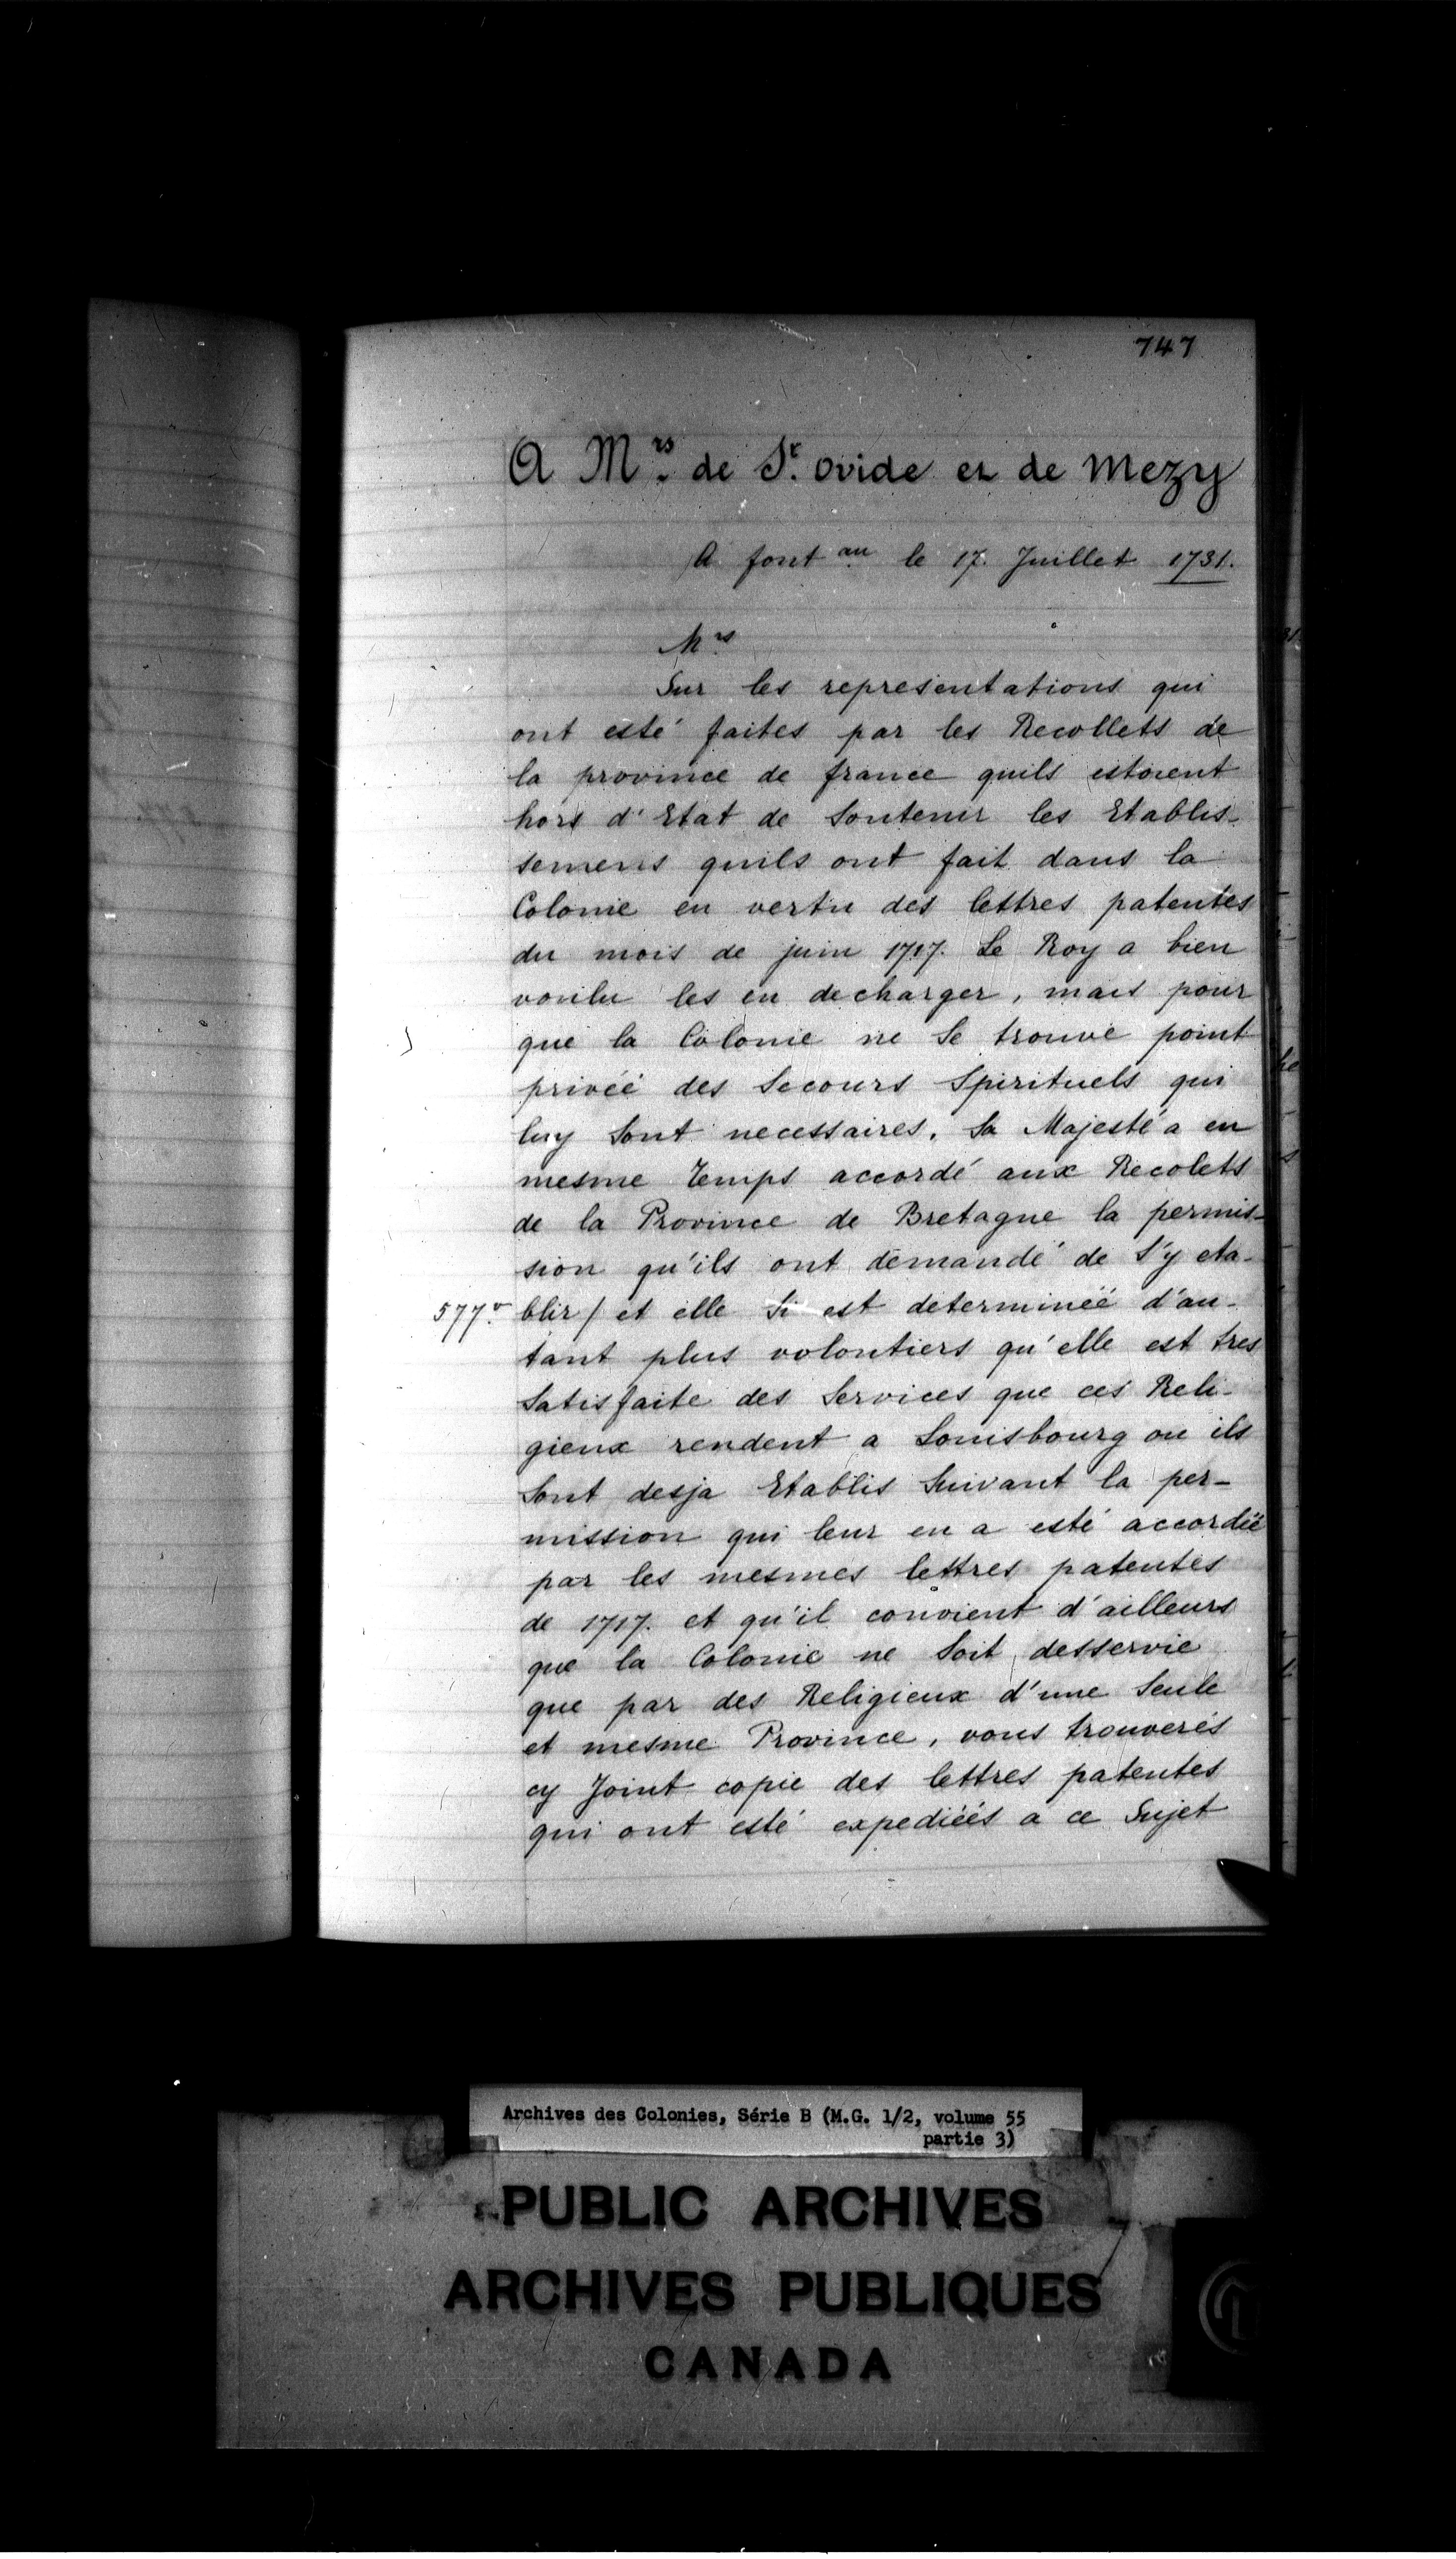 747
A Mrs. de St. ovide et de Mezy
A font au le 17. Juillet 1731.
Mrs
Sur les representations qui
ont esté faites par les Recollets de
la province de france quils estoient
hors d'Etat de Soutenir les Etablis-
semens quils ont fait dans la
Colonie en vertu des lettres patentes
du mois de juin 1717. Le Roy a bien
voulu les en decharger, mais pour
que la Colonie ne Se trouve point
privéé des Secours Spirituels qui
luy Sont necessaires. Sa Majesté a en
mesme temps accordé aux Recolets
de la Province de Bretagne la permis-
sion qu'ils ont demandé de S'y eta-
577v. blir / et elle Si est determinéé d'au-
tant plus volontiers qu'elle est tres
Satisfaite des Services que ces Reli-
gieux rendent a Louisbourg ou ils
Sont desja Etablis Suivant la per-
mission qui leur en a esté accordéé
par les mesmes lettres patentes
de 1717. et qu'il convient d'ailleurs
que la Colonie ne Soit desservie
que par des Religieux d'une Seule
et mesme Province, vous trouverés
cy Joint copie des lettres patentes
qui ont esté expediéés a ce Sujet
Archives des Colonies, Série B (M.G. 1/2, volume 55
partie 3)
PUBLIC ARCHIVES
ARCHIVES PUBLIQUES
CANADA